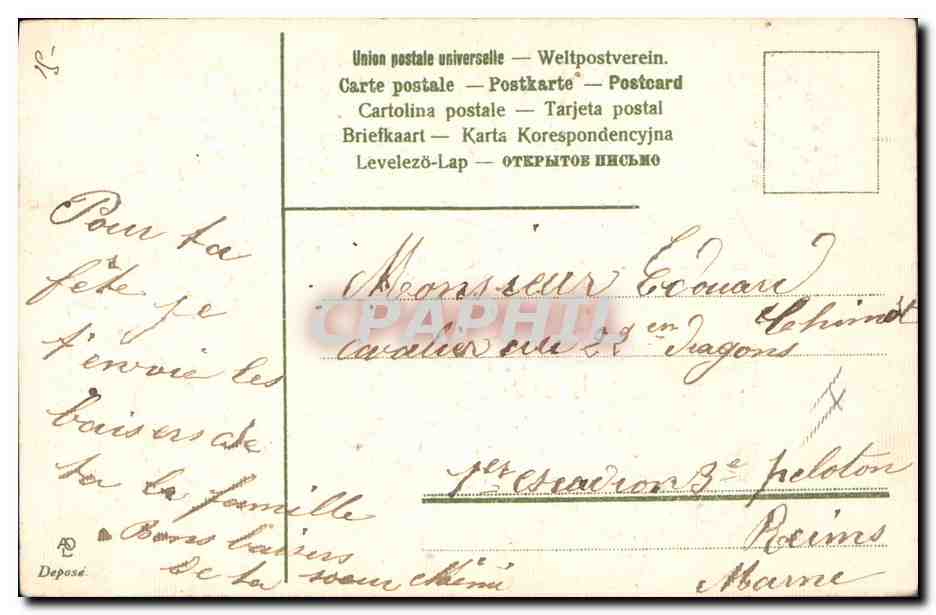 15-
Union postale universelle — Weltpostverein.
Carte postale — Postkarte — Postcard
Cartolina postale — Tarjeta postal
Briefkaart — Karta Korespondencyjna
Levelező-Lap — ОТКРЫТОЕ ПИСЬМО
Pour ta
fête je
t'envoie les
baisers de
ta la famille
Bons baisers
De ta soeur
Monsieur Edouard
Chimot
cavalier au 22 en dragons
1er escadron 3e peloton
Reims
Marne
CPAPHIL
Deposé.